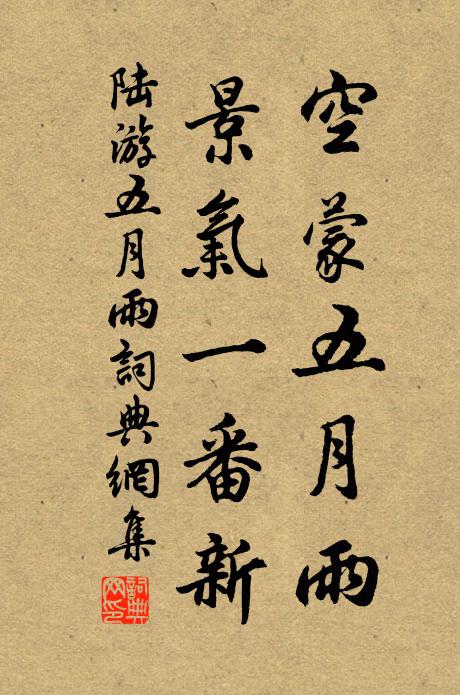 空蒙五月雨
景氣一番新
陸游五月雨詞典網集
詞典網印